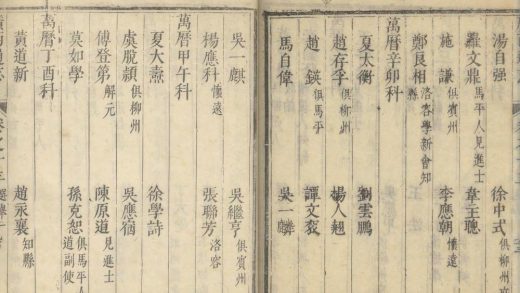 湯自强　徐中式
羅文鼎 馬平人見進士　韋王聰
施謙 俱賓州　李應朝 懷遠
鄭良相 洛容學新會知縣
萬曆辛卯科
夏太衡　劉雲鵬
趙存孚 俱柳州　楊人翹
趙鍈 俱馬平　譚文
馬自偉　吳一麟
吳一麒　吳繼亨 俱賓州
楊應科 懷遠　張聯芳 洛容
萬曆甲午科
夏大　徐學詩
虞脫穎 俱柳州　吳應
傅登第 解元　陳原道 見進士
莫如學　孫克恕 俱馬平人道副使
萬曆丁酉科
黃道新　趙永襄 知縣